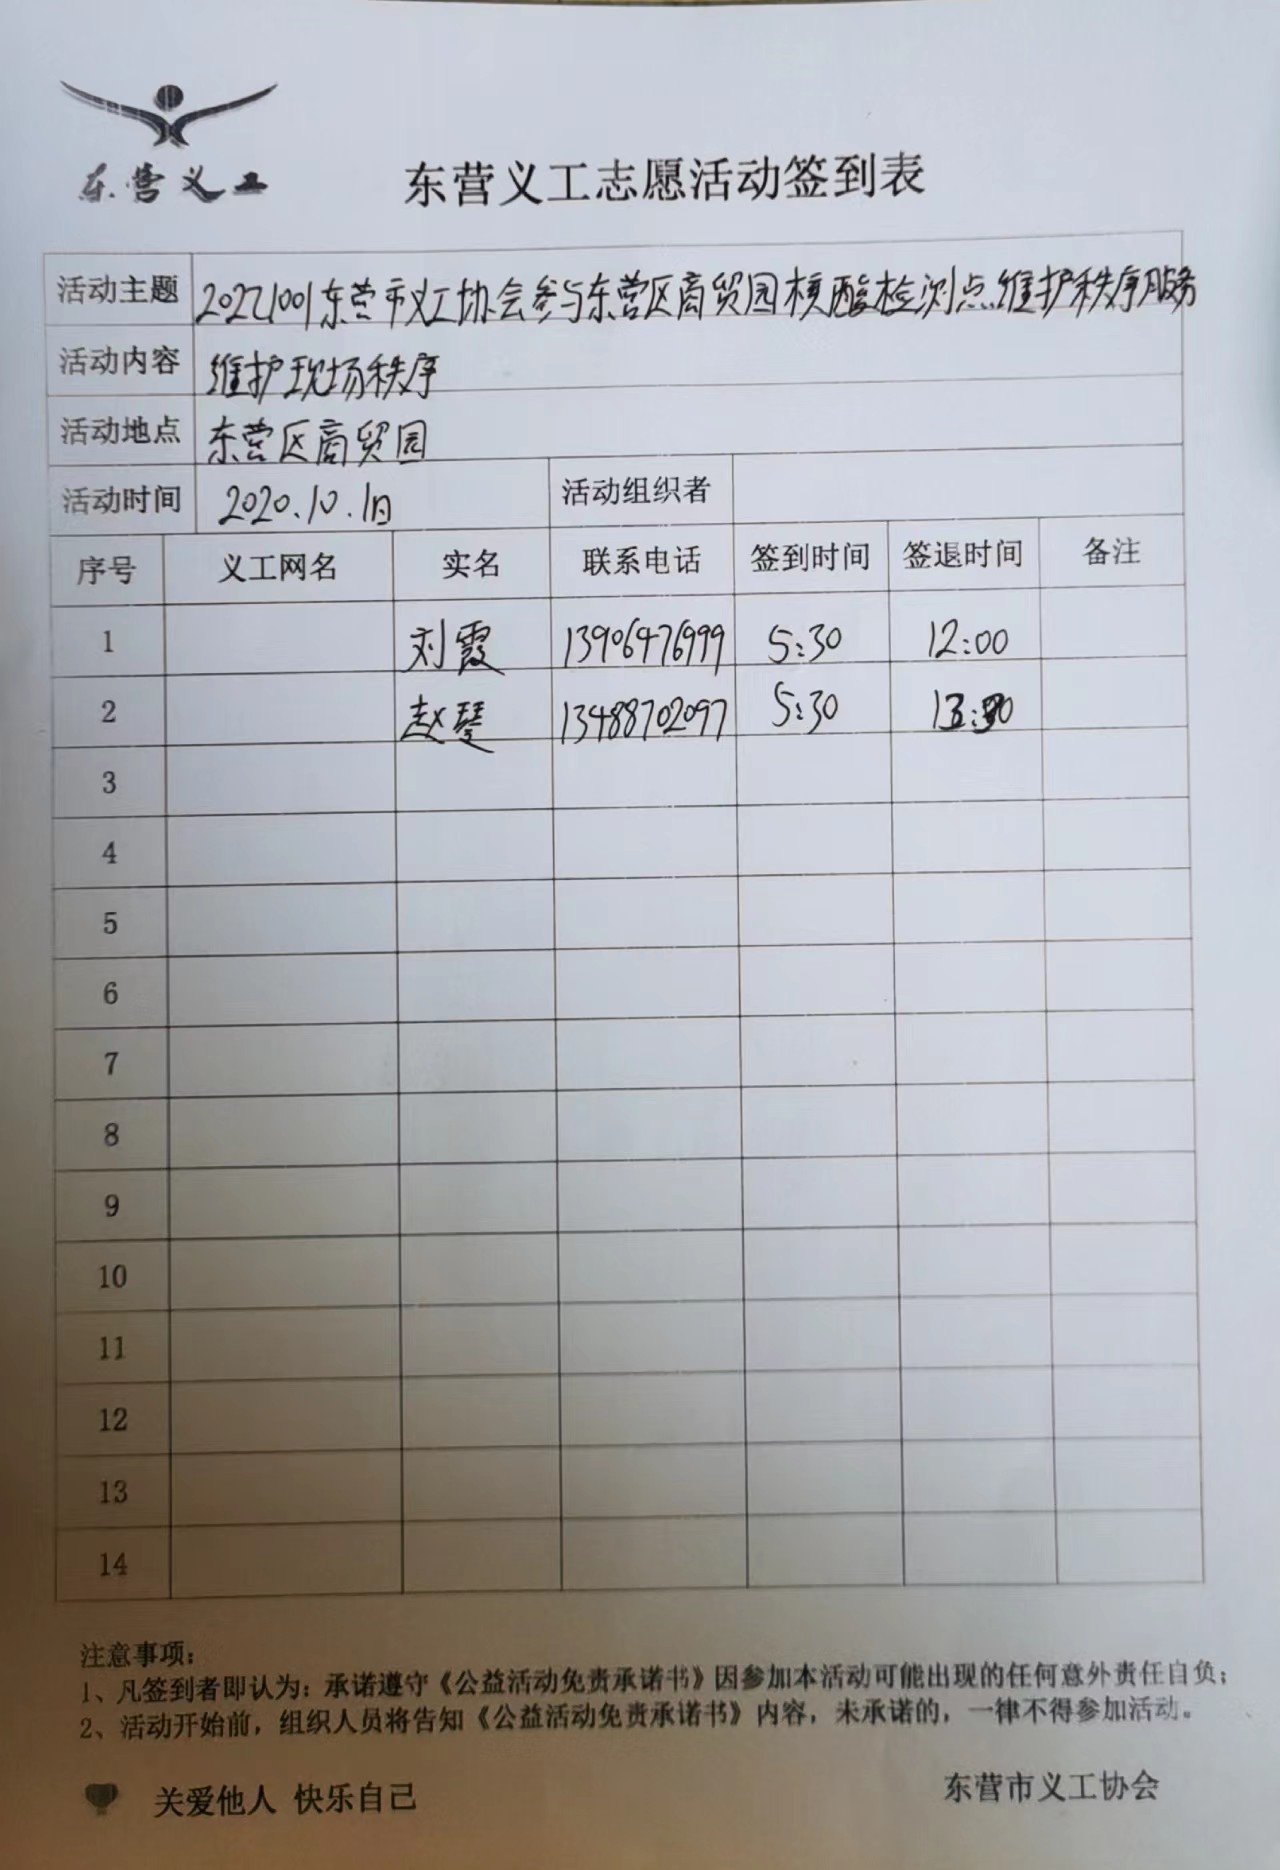 东营义工
东营义工志愿活动签到表
活动主题 20221001东营市义工协会参与东营区商贸园核酸检测点维护秩序服务
活动内容 维护现场秩序
活动地点 东营区商贸园
活动时间 2020.10.1日 活动组织者
序号 义工网名 实名 联系电话 签到时间 签退时间 备注
1 刘霞 13906476999 5:30 12:00
2 赵琴 13488702097 5:30
3
4
5
6
7
8
9
10
11
12
13
14
注意事项：
1、凡签到者即认为：承诺遵守《公益活动免责承诺书》因参加本活动可能出现的任何意外责任自负；
2、活动开始前，组织人员将告知《公益活动免责承诺书》内容，未承诺的，一律不得参加活动。
关爱他人 快乐自己 东营市义工协会